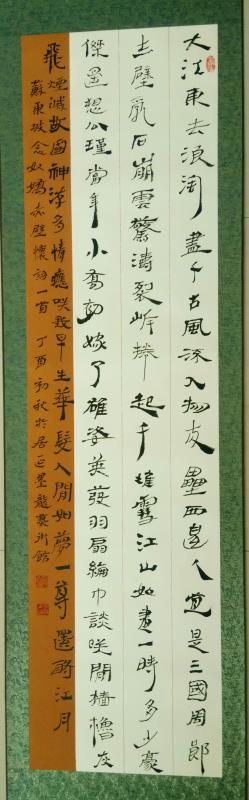 大江東去浪淘盡千古風流人物故壘西邊人道是三國周郎
赤壁亂石崩雲驚濤裂岸捲起千堆雪江山如畫一時多少豪
傑遙想公瑾當年小喬初嫁了雄姿英發羽扇綸巾談笑間檣櫓灰
飛煙滅故國神游多情應笑我早生華髮人間如夢一尊還酹江月
蘇東坡念奴嬌赤壁懷一首丁酉初秋於居正墨龍藝術館